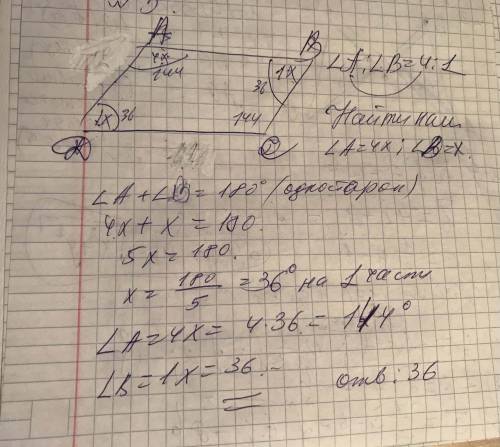 № 3.
A
B
4x
144
1x
36
1x 36
144
C
∠A : ∠B = 4 : 1
Найти наим.
∠A = 4x ; ∠B = x.
∠A + ∠B = 180° (односторон)
4x + x = 180.
5x = 180.
x = 180/5 = 36° на 1 части
∠A = 4x = 4 · 36 = 144°
∠B = 1x = 36.
отв : 36